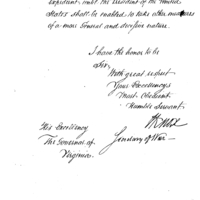 expedient, until the President of the United
States shall be enabled to take other measures
of a more General and decisive nature.
I have the honor to be
Sir,
With great respect
Your Excellency's
Most Obedient
Humble Servant
H Knox
Secretary of War
His Excellency
The Governor of
Virginia